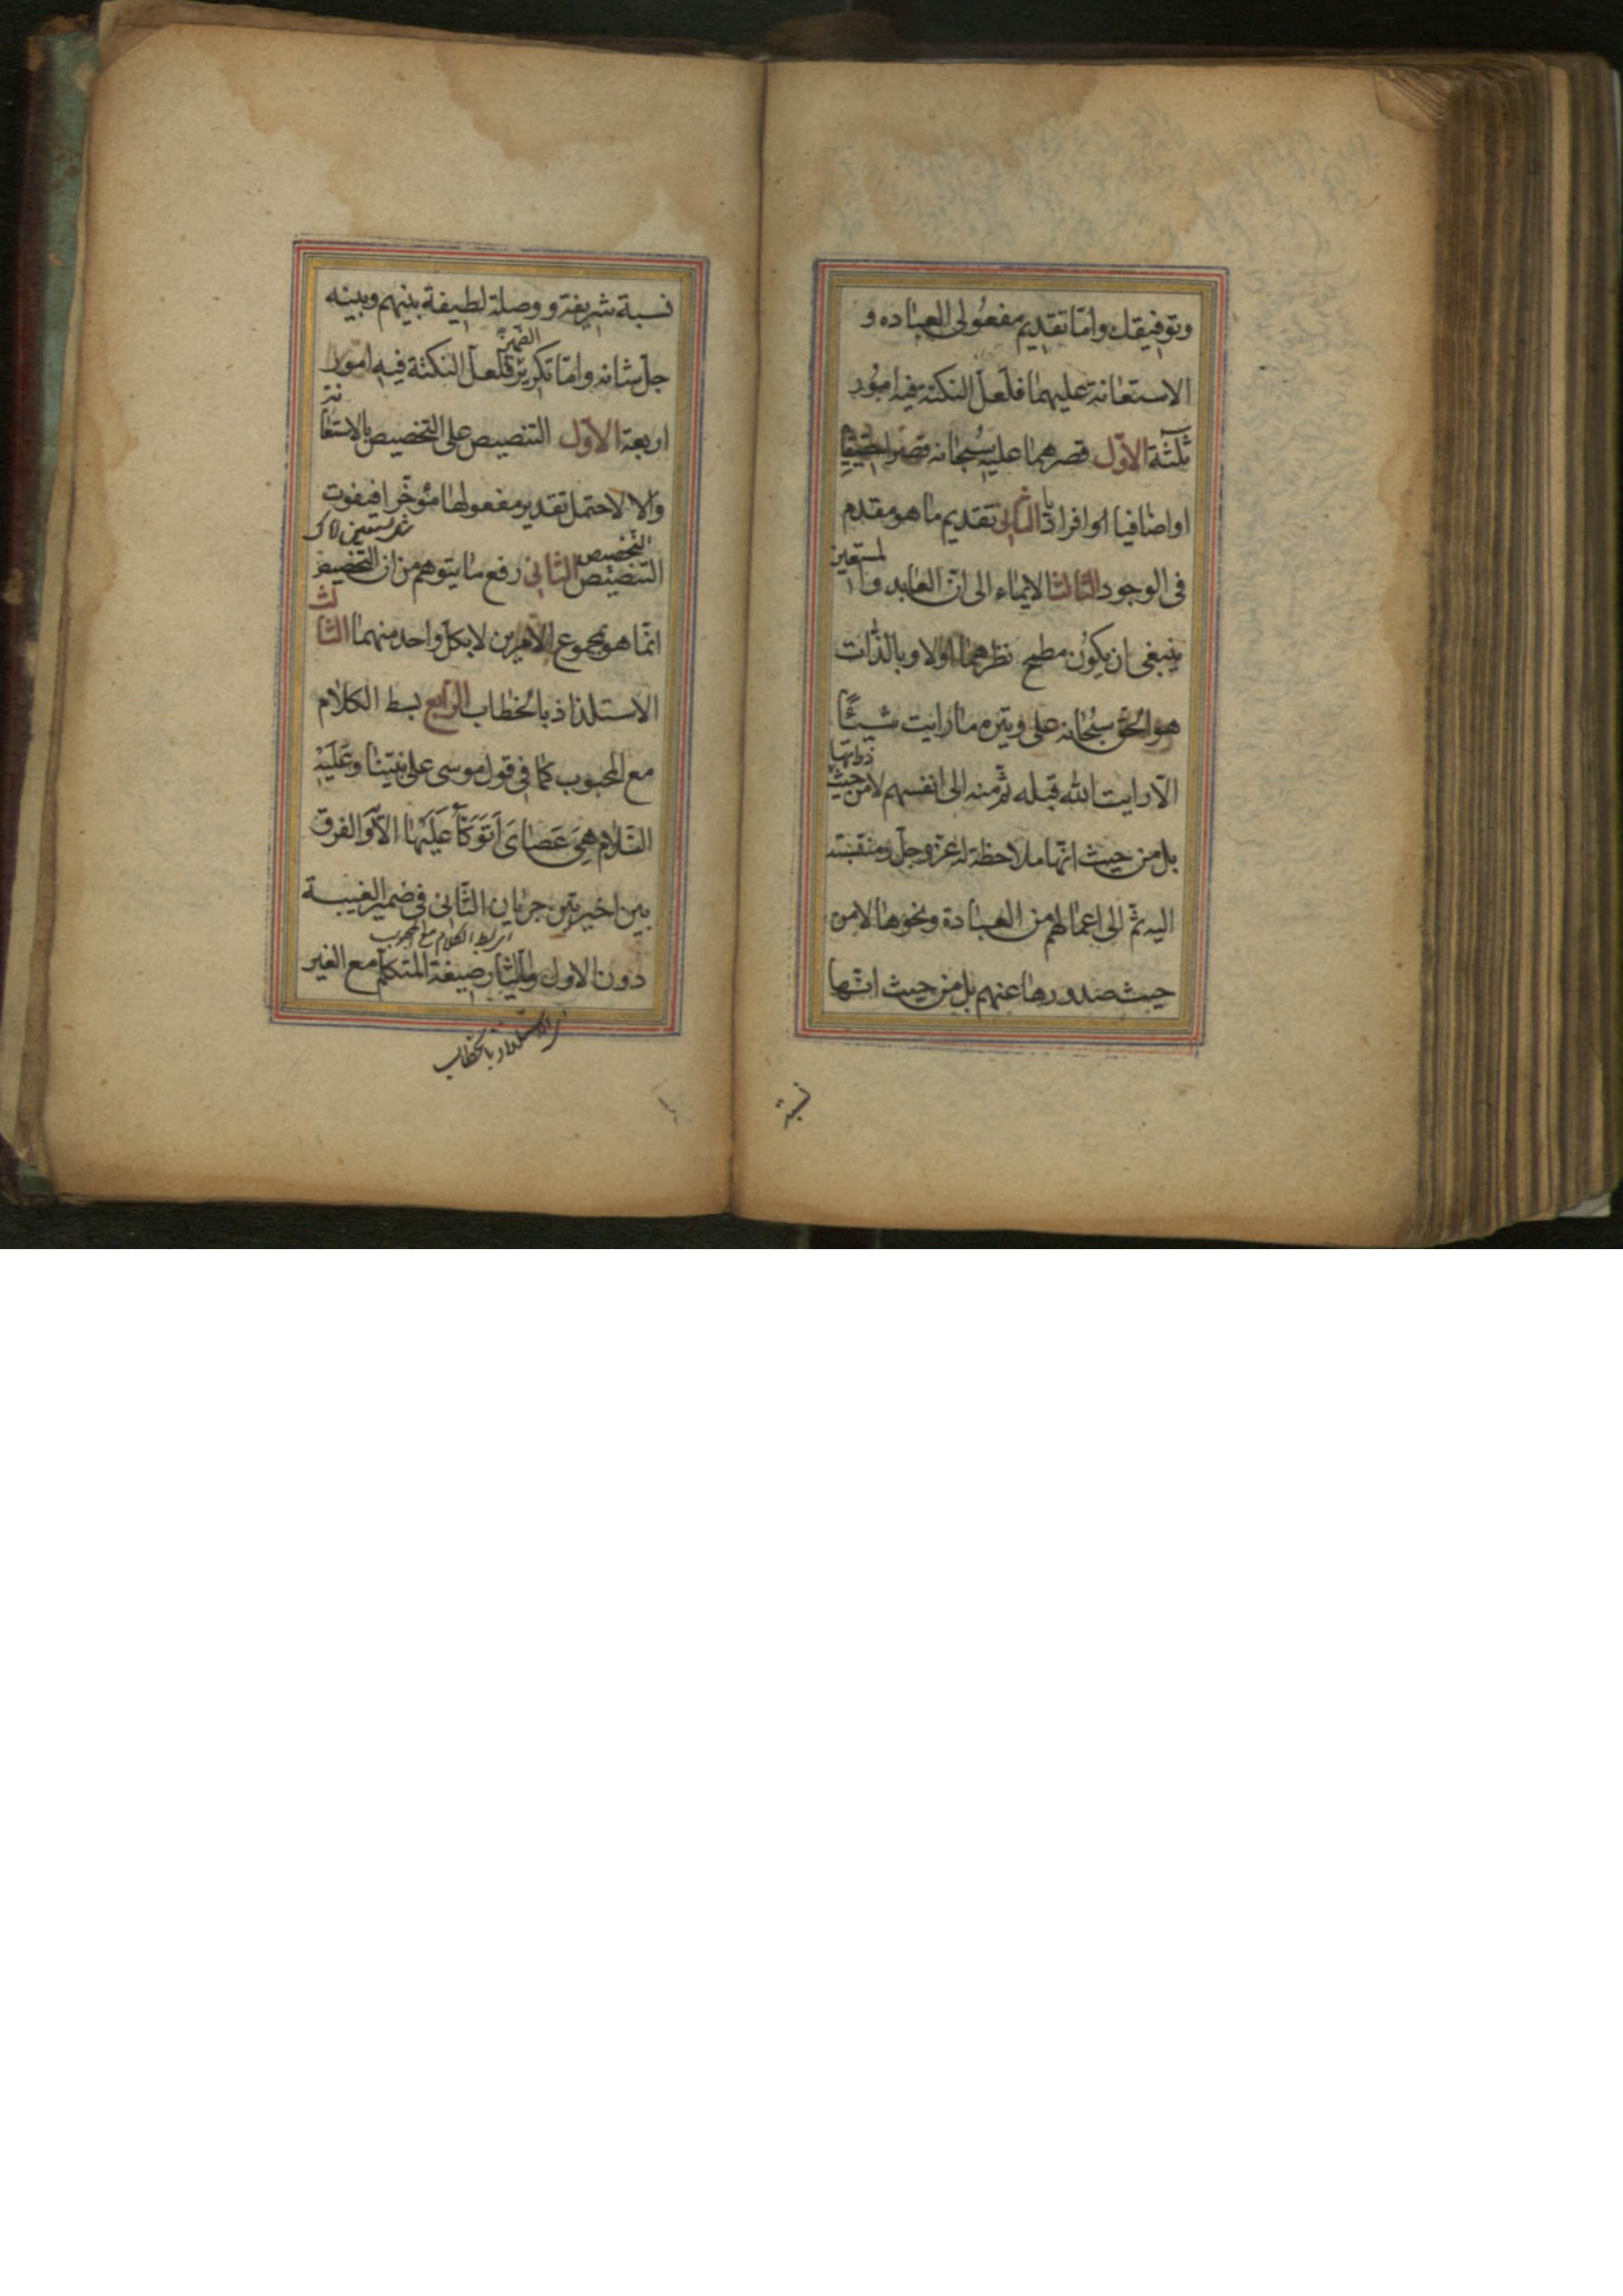 وتوفيقك واما تقديم مفعولى العباده و
الاستعانة عليهما فلعل النكتة فيه امور
ثلثة الاول قصرهما عليه سبحانه قصرا حقيقيا
او اضافيا افراديا الثانى تقديم ما هو مقدم
فى الوجود الثالث الايماء الى ان العابد والمستعين
ينبغى ان يكون مطمح نظرهما اولا وبالذات
هو الحق سبحانه على وتيرة ما رايت شيئا
الا رايت الله قبله ثم منه الى انفسهم لا من حيث ذواتها
بل من حيث انها ملاحظة له عز وجل ومنتسبة
اليه ثم الى اعمالهم من العبادة ونحوها لا من
حيث صدورها عنهم بل من حيث انها
نسبة
نسبة شريفة ووصلة لطيفة بينهم وبينه
جل شانه واما تكرير الضمير فلعل النكتة فيه امور
اربعة الاول التنصيص على التخصيص بالاستعانة
والا لاحتمل تقدير مفعولها مؤخرا فيفوت
مثل نستعين اياك
التخصيص
التنصيص الثانى رفع ما يتوهم من ان التخصيص
انما هو بمجموع الامرين لا بكل واحد منهما الثالث
الاستلذاذ بالخطاب الرابع بسط الكلام
مع المحبوب كما فى قول موسى على نبينا وعليه
السلام هِىَ عَصَاىَ أَتَوَكَّأُ عَلَيْهَا الآية والفرق
بين اخيرتين جريان الثانى فى ضمير الغيبة
اى بسط الكلام مع المحبوب
دون الاول وايثار صيغة المتكلم مع الغير
اى الاستلذاذ بالخطاب